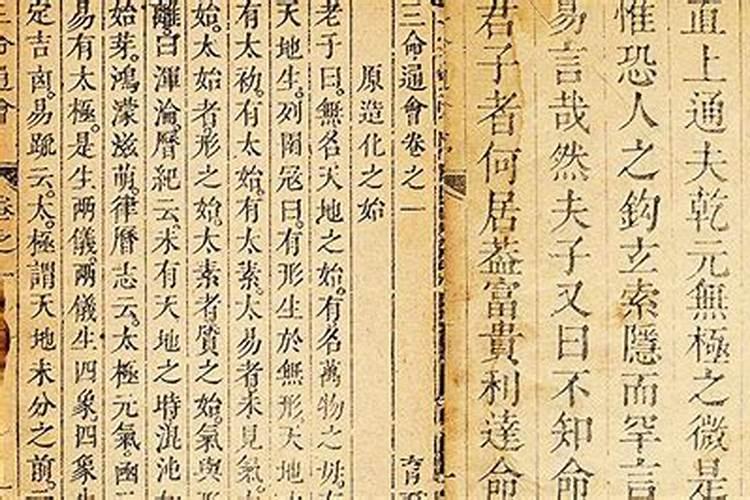 直上通夫乾元無極之微是
惟恐人之鈎玄索隱而罕言
易言哉然夫子又曰不知命
君子者何居葢富貴利達命
三命通會卷之一 育
原造化之始
老子曰。無名天地之始。有名萬物之母。有
天地生。列圄冦曰。有形生於無形。天地
有太初。有太始。有太素。太易者未見氣。
始。太始者形之始。太素者質之始。氣與形
離。曰渾淪。曆紀云。未有天地之時混沌如
始芽。鴻濛滋萌。律曆志云。太極元氣。函
易有太極。是生兩儀。兩儀生四象。四象生
定吉凶。易䟽云。太極謂天地未分之前。元
三命通會 卷之一